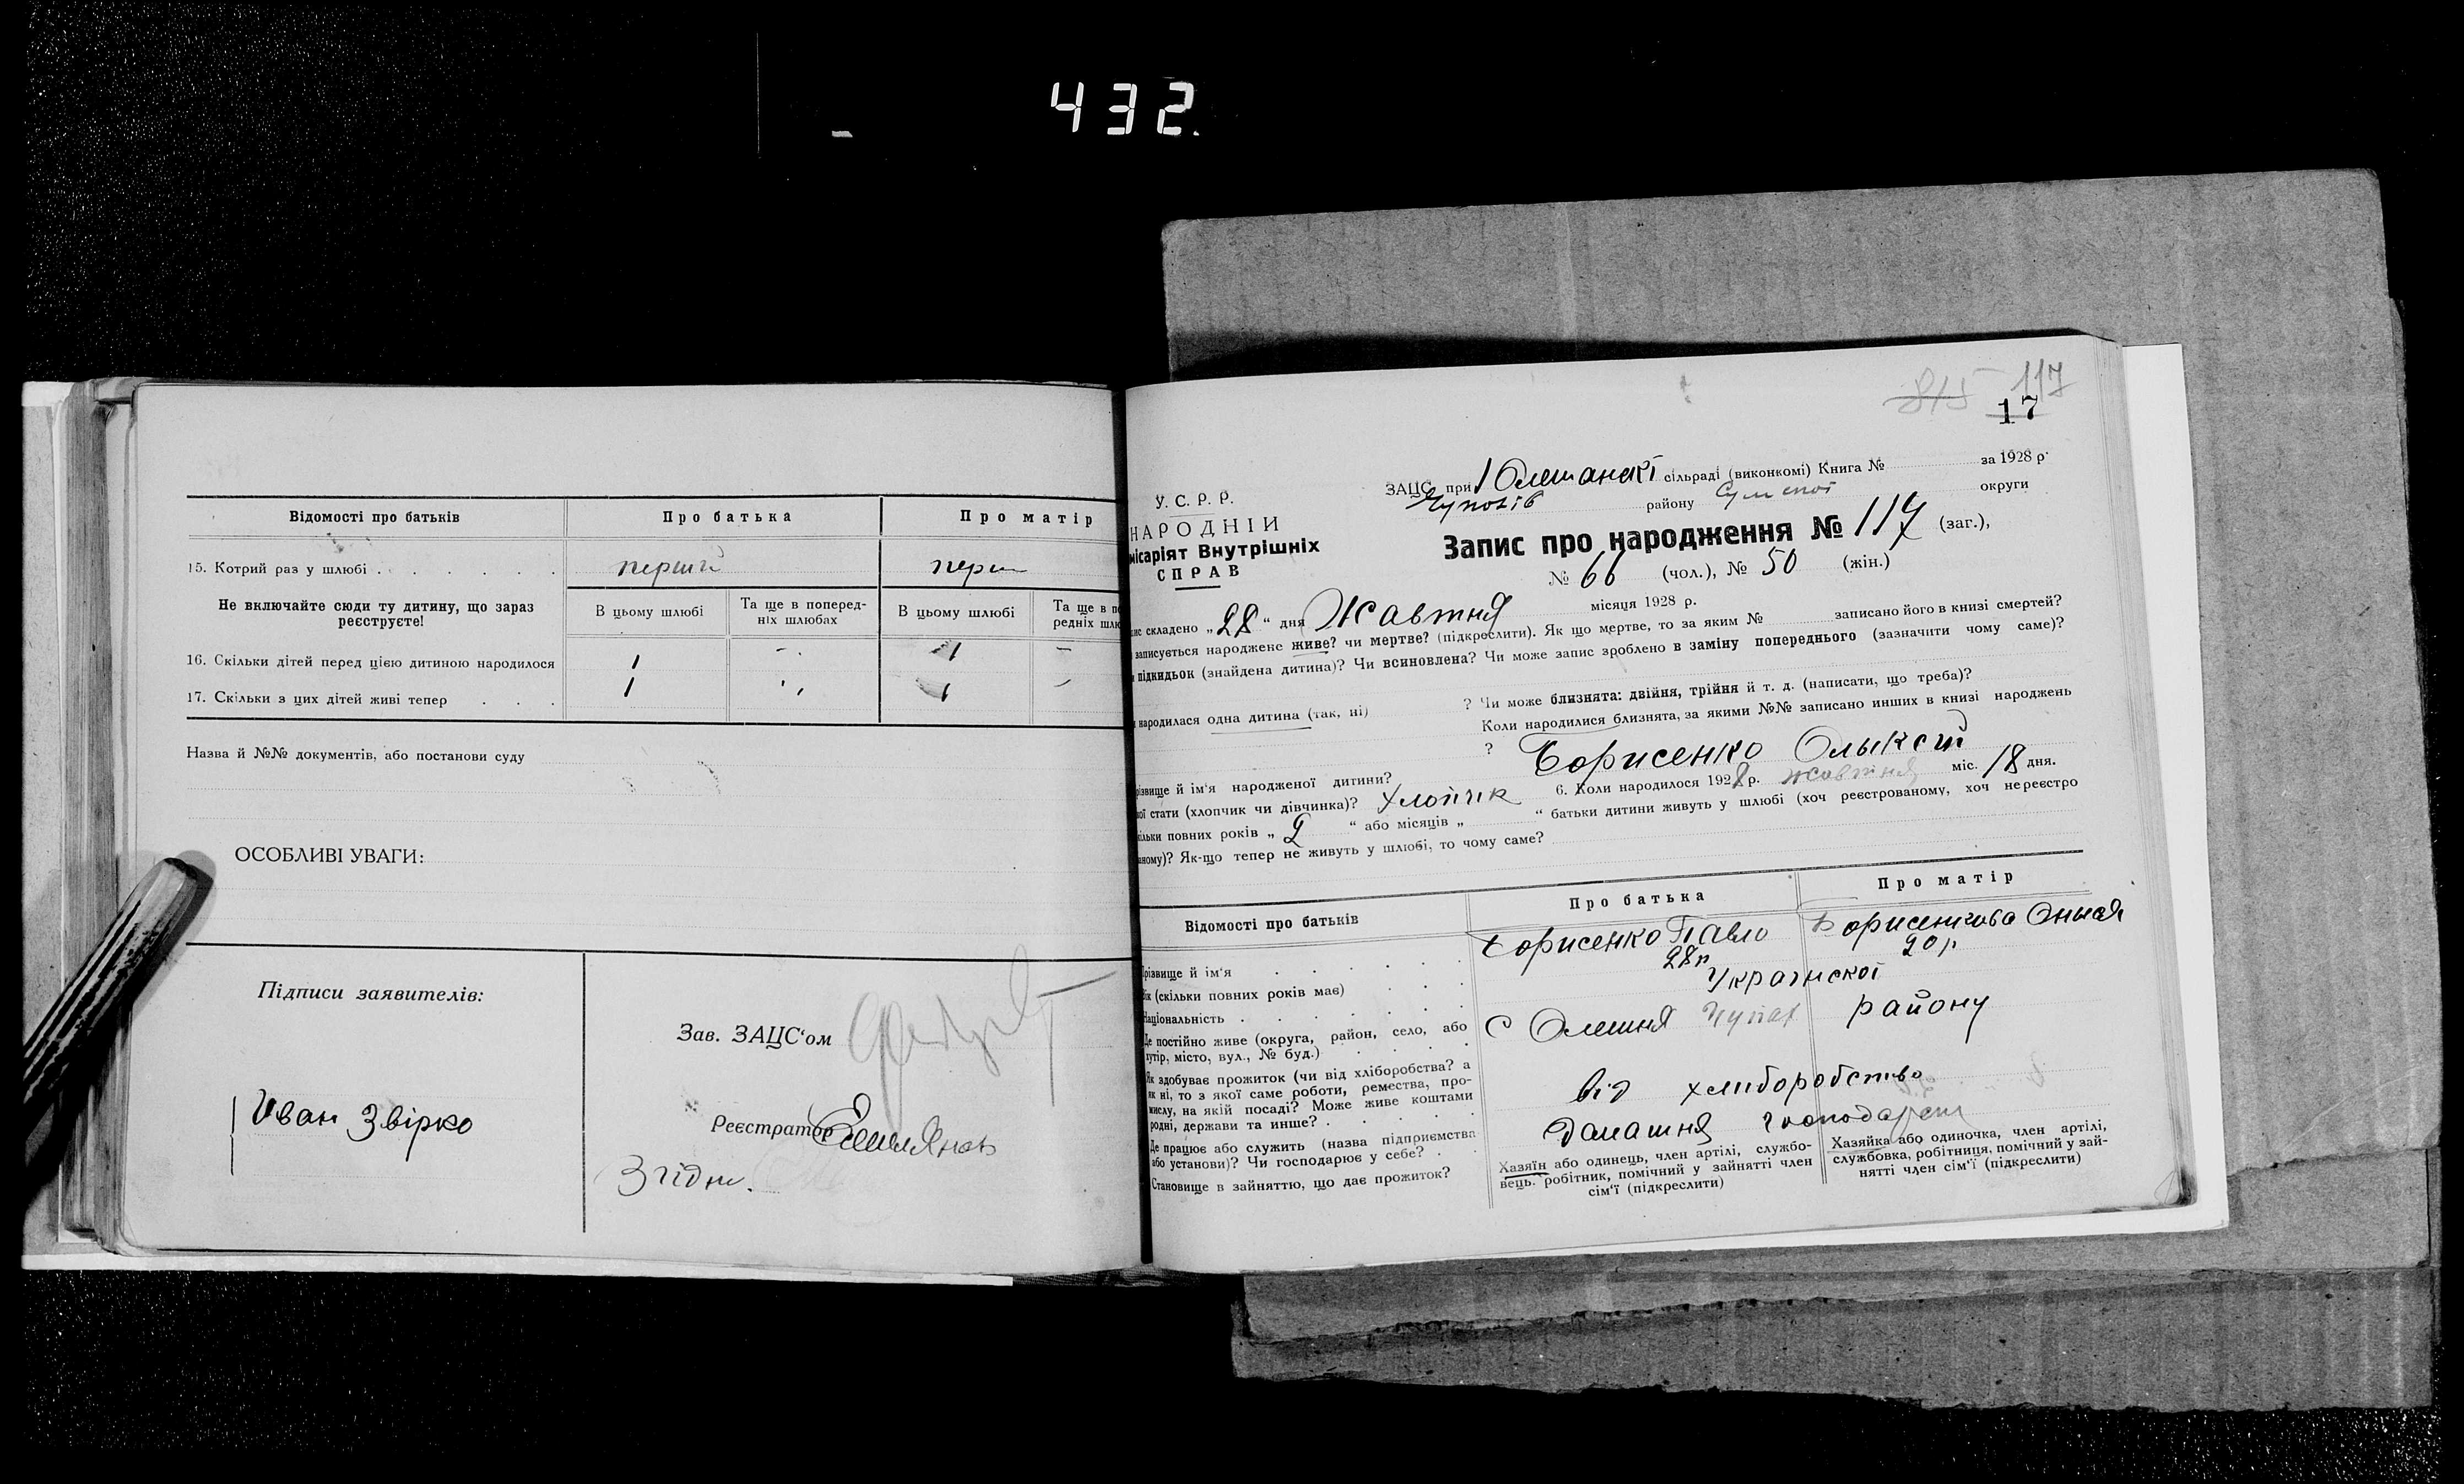 432.
Відомості про батьків
Про батька
Про матір
15. Котрий раз у шлюбі . . . . . .
перший
перш
Не включайте сюди ту дитину, що зараз
реєструєте!
В цьому шлюбі
Та ще в поперед-
ніх шлюбах
В цьому шлюбі
Та ще в по
редніх шлю
16. Скільки дітей перед цією дитиною народилося
1 - 1 -
17. Скільки з цих дітей живі тепер . . .
1 " 1 -
Назва й №№ документів, або постанови суду
ОСОБЛИВІ УВАГИ:
Підписи заявителів:
Иван Звірко
Зав. ЗАЦС'ом
Реєстратор
Згідн.
815 117
17
У. С. Р. Р.
НАРОДНІЙ
місаріят Внутрішніх
СПРАВ
ЗАЦС при 1 Олешанскі сільраді (виконкомі) Книга № за 1928 р.
району Сумскої округи
Запис про народження № 117 (заг.),
№ 66 (чол.), № 50 (жін.)
ис складено „28" дня Жавтня місяця 1928 р.
записується народжене живе? чи мертве? (підкреслити). Як що мертве, то за яким № записано його в книзі смертей?
підкидьок (знайдена дитина)? Чи всиновлена? Чи може запис зроблено в заміну попереднього (зазначити чому саме)?
народилася одна дитина (так, ні) ? Чи може близнята: двійня, трійня й т. д. (написати, що треба)?
Коли народилися близнята, за якими №№ записано инших в книзі народжень
?
різвище й ім'я народженої дитини? Борисенко Олыксій
ої стати (хлопчик чи дівчинка)? Хлопчик 6. Коли народилося 1928 р. жовтня міс. 18 дня.
ільки повних років „ 2 " або місяців „ " батьки дитини живуть у шлюбі (хоч реєстрованому, хоч нереєстро
аному)? Як-що тепер не живуть у шлюбі, то чому саме?
Відомості про батьків
Про батька
Про матір
різвище й ім'я . . . . . .
Борисенко Павло
Борисенкова
ік (скільки повних років має) . . .
28 р
20 р
Національність . . . . . . .
Украінскої
Де постійно живе (округа, район, село, або
хутір, місто, вул., № буд.) . . . .
С Олешня Чупах району
Як здобуває прожиток (чи від хліборобства? а
як ні, то з якої саме роботи, ремества, про-
мислу, на якій посаді? Може живе коштами
родні, держави та инше? . . . . .
від хлиборобство
Де працює або служить (назва підприємства
або установи)? Чи господарює у себе? . .
Дамашня
Становище в зайняттю, що дає прожиток?
Хазяїн або одинець, член артілі, службо-
вець. робітник, помічний у зайнятті член
сім'ї (підкреслити)
Хазяйка або одиночка, член артілі,
службовка, робітниця, помічний у зай-
нятті член сім'ї (підкреслити)